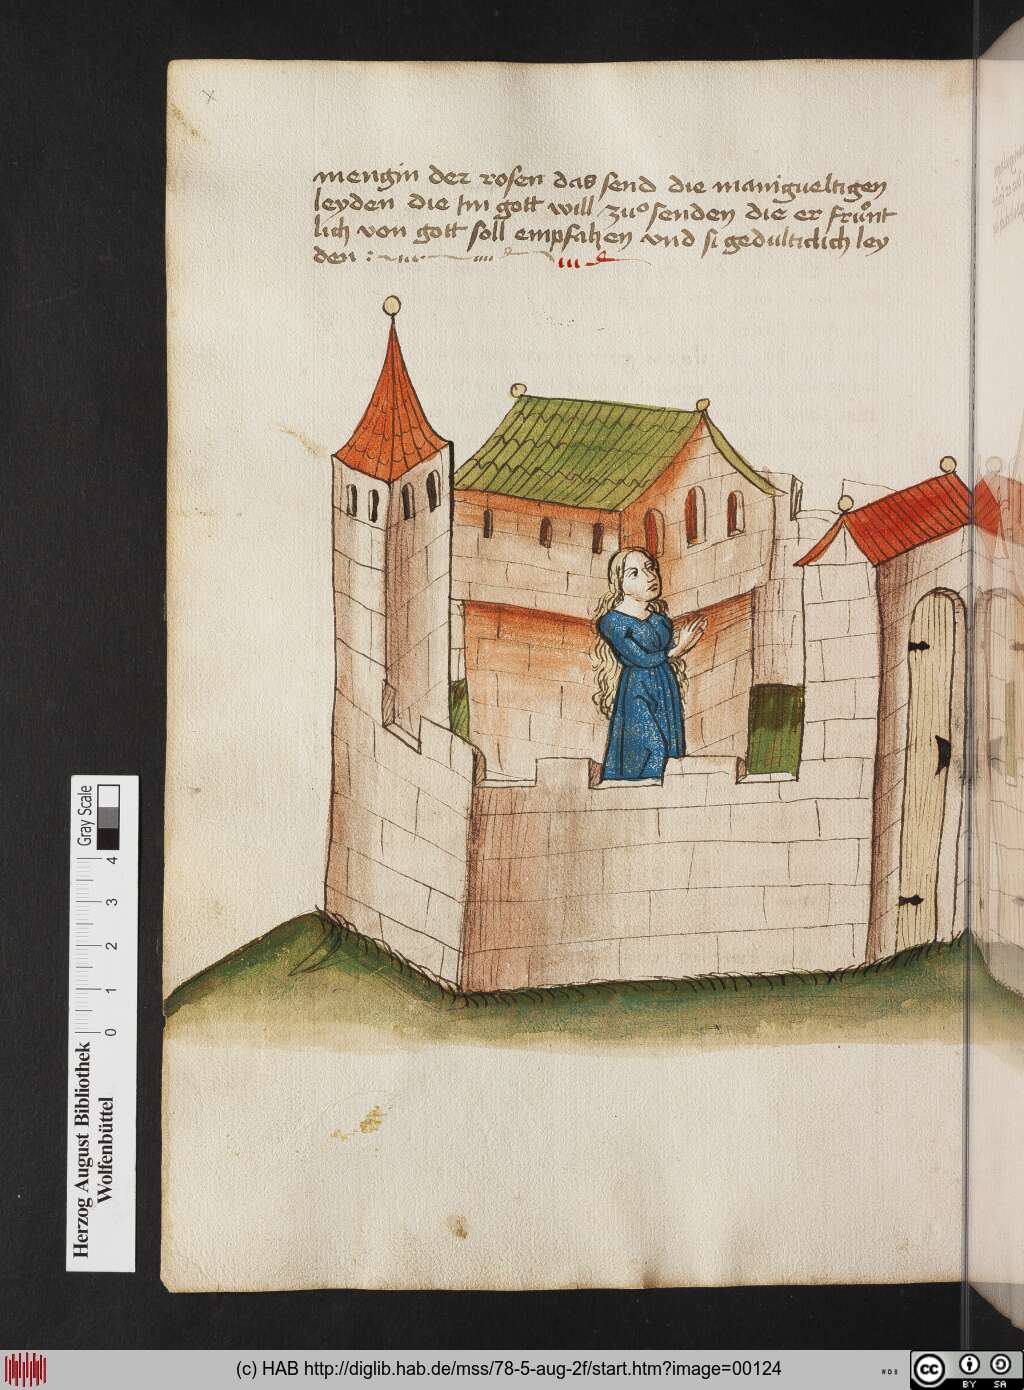 mengin der rosen das send die manigueltigen
leyden die im gott will zuͦ senden die er fruͦnt
lich von gott soll empfahen vnd si gedulticlich ley
den :
Gray Scale
4
3
2
1
0
Herzog August Bibliothek
Wolfenbüttel
(c) HAB http://diglib.hab.de/mss/78-5-aug-2f/start.htm?image=00124
WDB
cc
BY SA